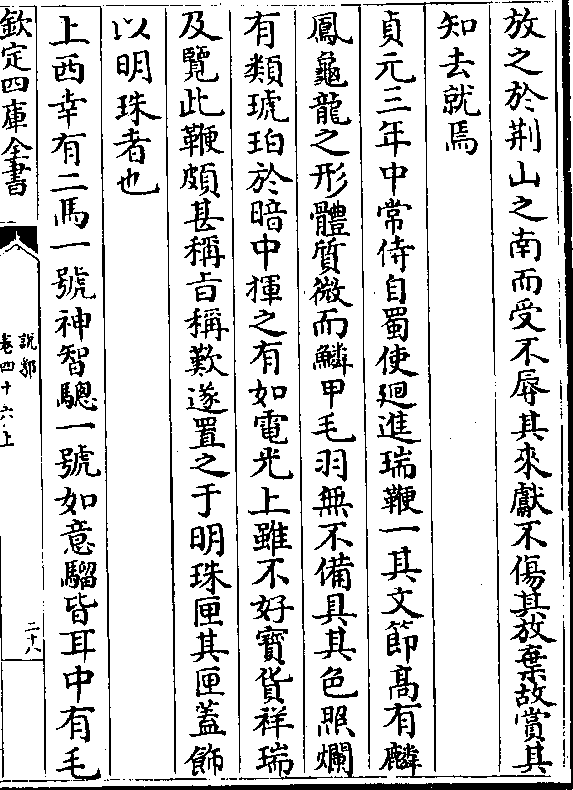 放之於荆山之南而受不辱其來獻不傷其放棄故賞其
知去就焉
貞元三年中常侍自蜀使廻進瑞鞭一其文節髙有麟
鳳龜龍之形體質微而鱗甲毛羽無不備具其色照爛
有類琥珀於暗中揮之有如電光上雖不好寳貨祥瑞
及覽此鞭頗甚稱㫖稱歎遂置之于明珠匣其匣蓋飾
以明珠者也
上西幸有二馬一號神智驄一號如意騮皆耳中有毛
欽定四庫全書
説郛
卷四十六上
二十八